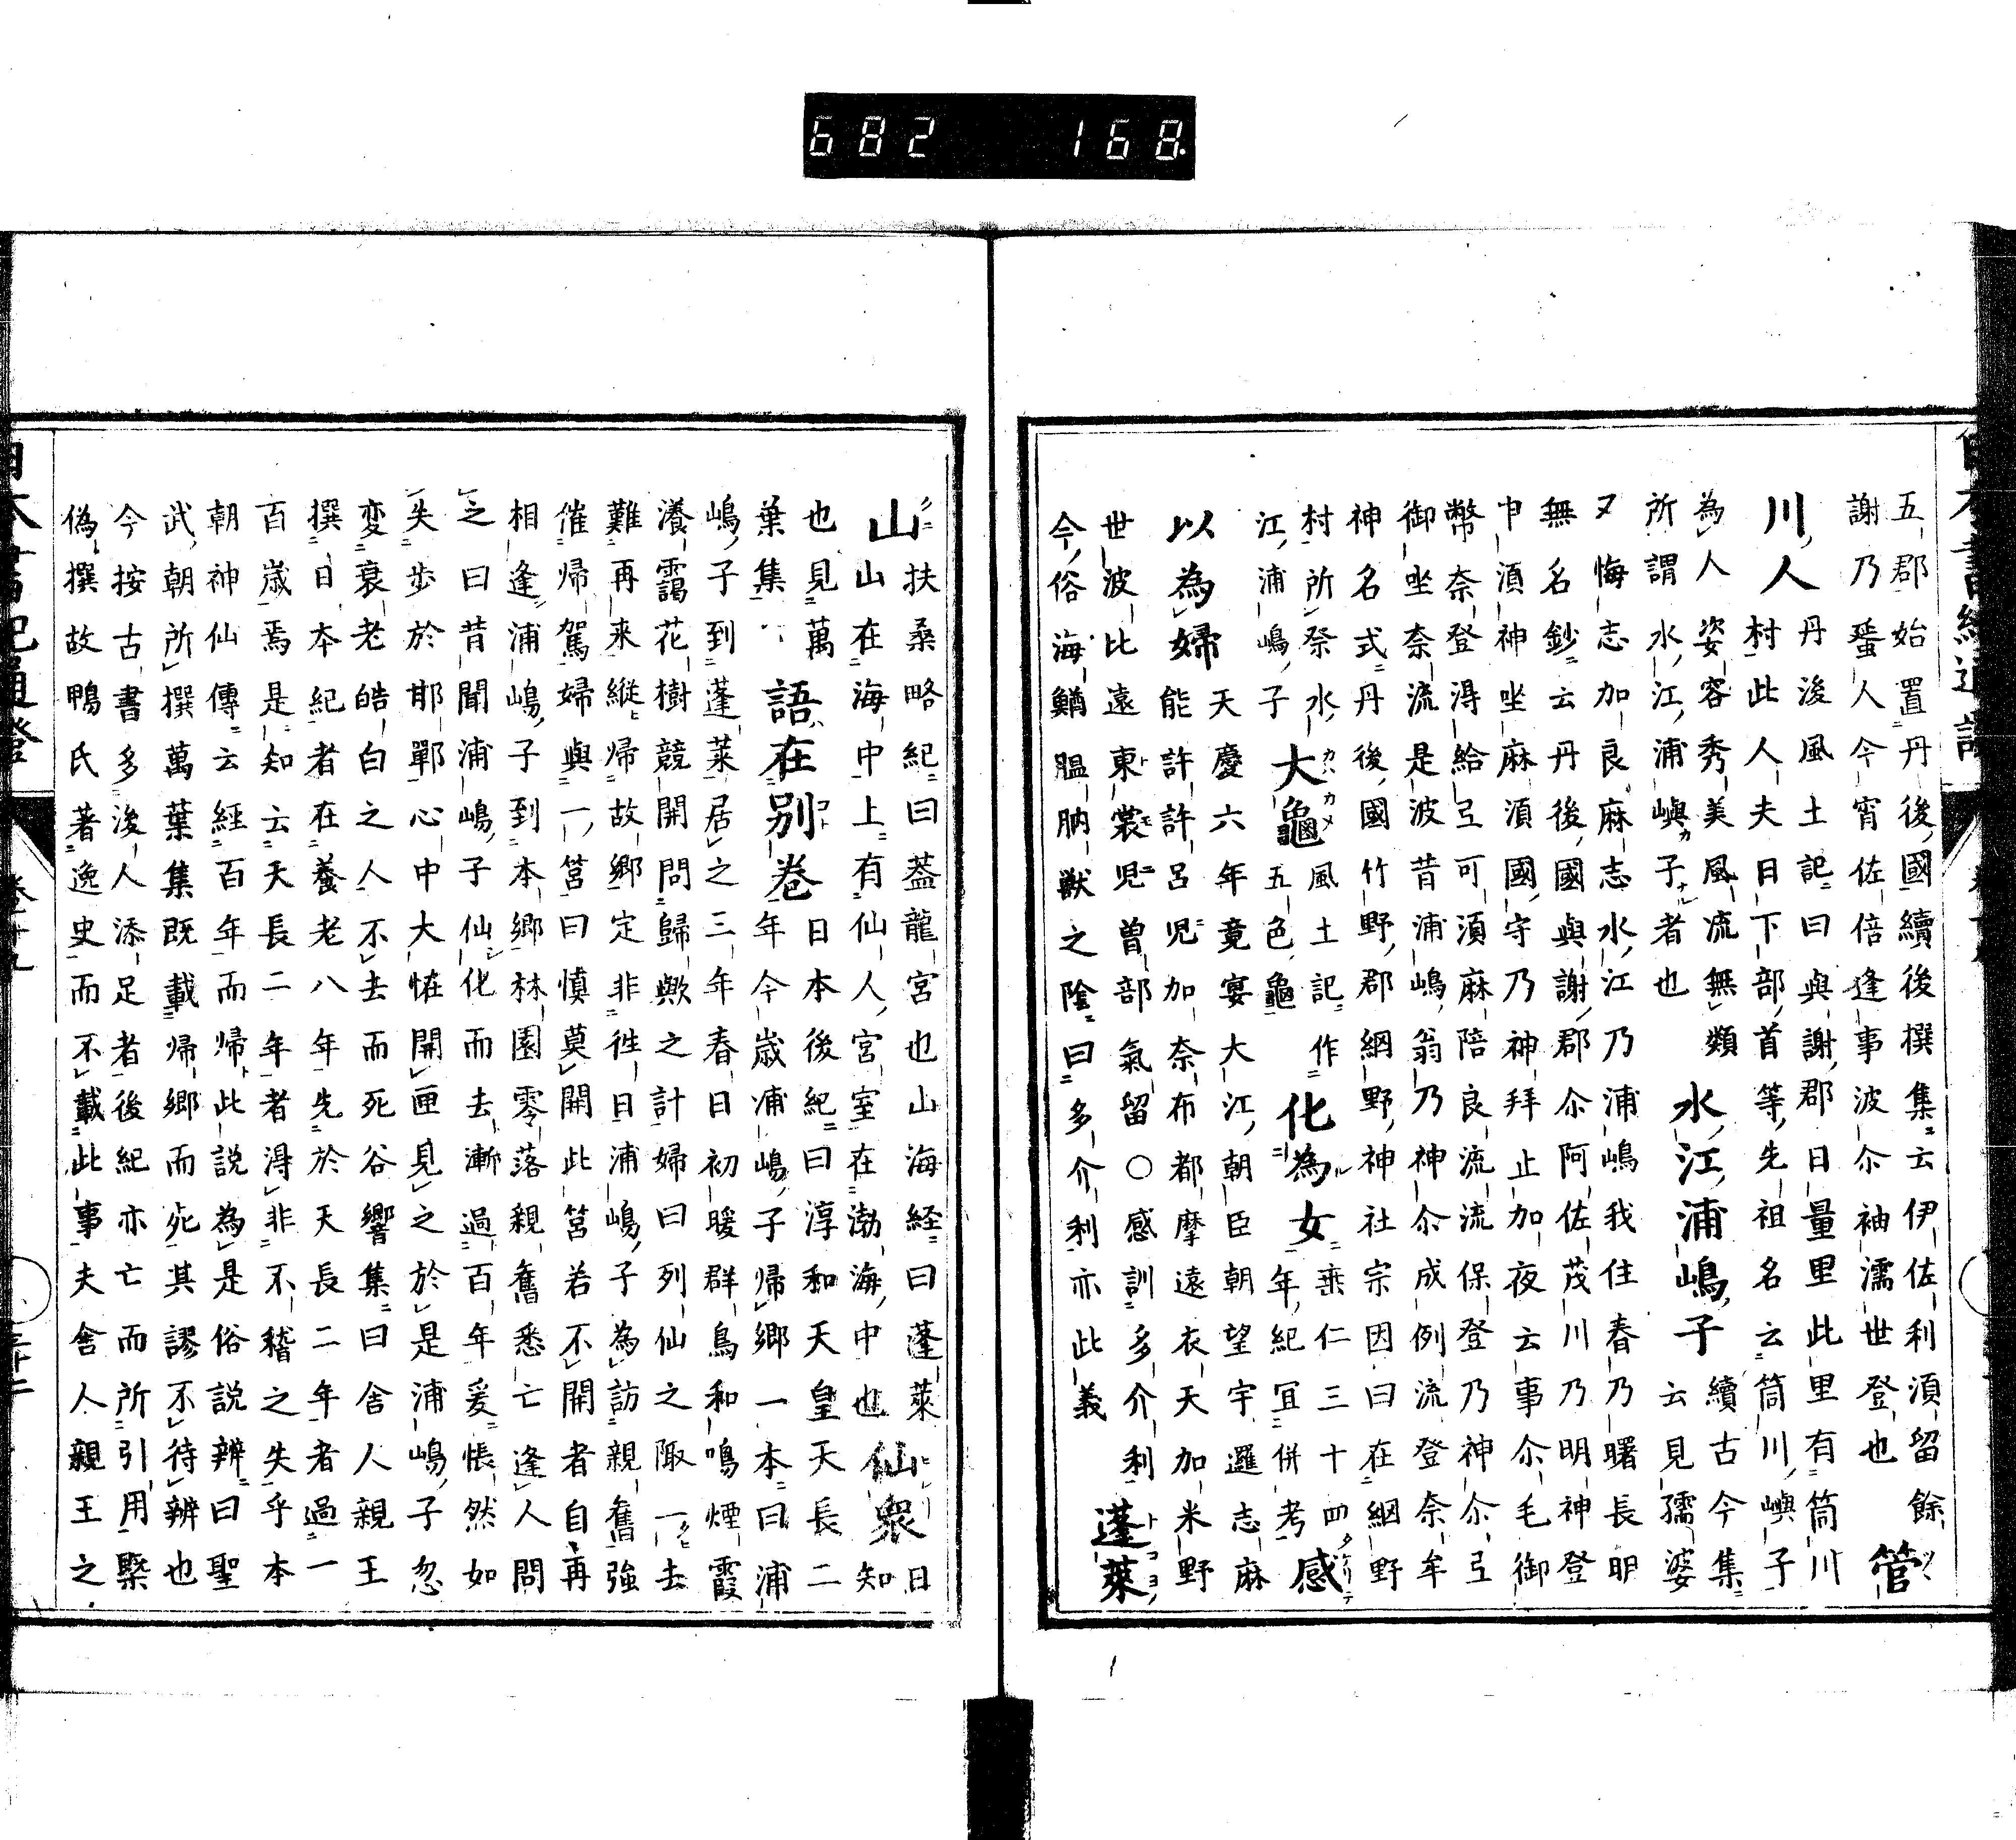 682 168
五郡始置丹後國續後撰集云伊佐利湏留餘
謝乃蜑人今宵佐倍逢事波尒袖濡世登也管
丹後風土記曰與謝郡日量里此里有筒川
川人村此人夫日下部首等先祖名云筒川嶼子
為人姿容秀美風流無類水江浦嶋子續古今集
所謂水江浦嶼子者也云見孺婆
又悔志加良麻志水江乃浦嶋我住春乃曙長明
無名鈔云丹後國與謝郡尒阿佐茂川乃明神登
申湏神坐麻湏國守乃神拜止加夜云事尒毛御
幣奈登淂給弖可湏麻陪良流流保登乃神尒弖
御坐奈流是波昔浦嶋翁乃神尒成例流登奈牟
神名式丹後國竹野郡網野神社宗因曰在網野
村所祭水大龜風土記作化為女垂仁三十四感
江浦嶋子五色龜年紀宜併考
天慶六年竟宴大江朝臣朝望宇邏志麻
以為婦能許許呂児加奈布都摩遠衣天加米野
世波比遠東裳児曽部氣留〇感訓多介利蓬萊
今俗海鰌膃肭獣之陰曰多介利亦此義
扶桑略紀曰蓋龍宮也山海経曰蓬萊仙衆日
山山在海中上有仙人宮室在渤海中也知
也見萬語在別卷日本後紀曰淳和天皇天長二
葉集年今歳浦嶋子帰郷一本曰浦
嶋子到蓬萊居之三年春日初暖群鳥和鳴煙霞
瀁靄花樹競開問歸歟之計婦曰列仙之陬一去
難再来縦帰故郷定非徃日浦嶋子為訪親舊強
催帰駕婦與一筥曰慎莫開此筥若不開者自再
相逢浦嶋子到本郷林園零落親舊悉亡逢人問
之曰昔聞浦嶋子仙化而去漸過百年爰悵然如
失歩於邯鄲心中大恠開匣見之於是浦嶋子忽
変衰老皓白之人不去而死谷響集曰舎人親王
撰日本紀者在養老八年先於天長二年者過一
百歳焉是知云天長二年者淂非不稽之失乎本
朝神仙傳云経百年而帰此説為是俗説辨曰聖
武朝所撰萬葉集既載帰郷而死其謬不待辨也
今按古書多後人添足者後紀亦亡而所引用槩
偽撰故鴨氏著逸史而不載此事夫舎人親王之